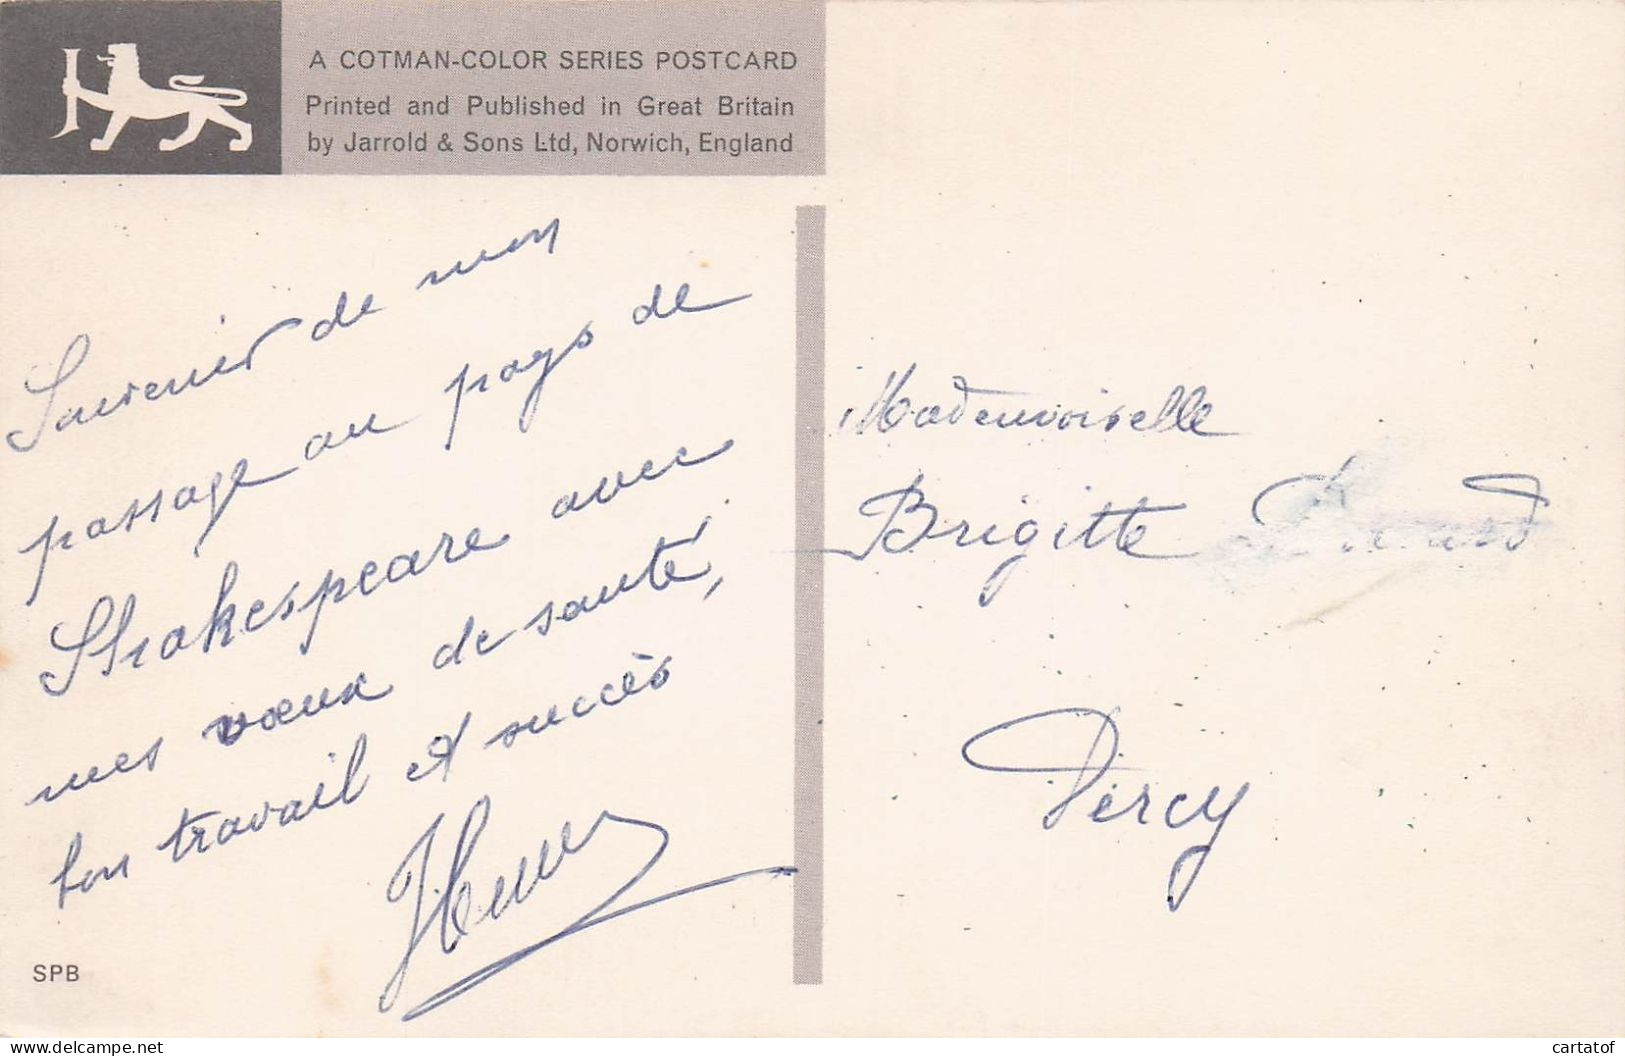 A COTMAN-COLOR SERIES POSTCARD
Printed and Published in Great Britain
by Jarrold & Sons Ltd, Norwich, England
Souvenir de mon
passage au pays de
Shakespeare avec
mes vœux de santé,
bon travail et succès
SPB
Mademoiselle
Brigitte
Percy
www.delcampe.net
cartatof